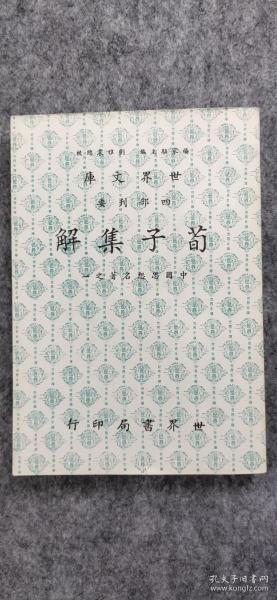 楊家駱主編 劉雅農總校
世界文庫
四部刊要
荀子集解
中國思想名著之一
世界書局印行
孔夫子旧书网